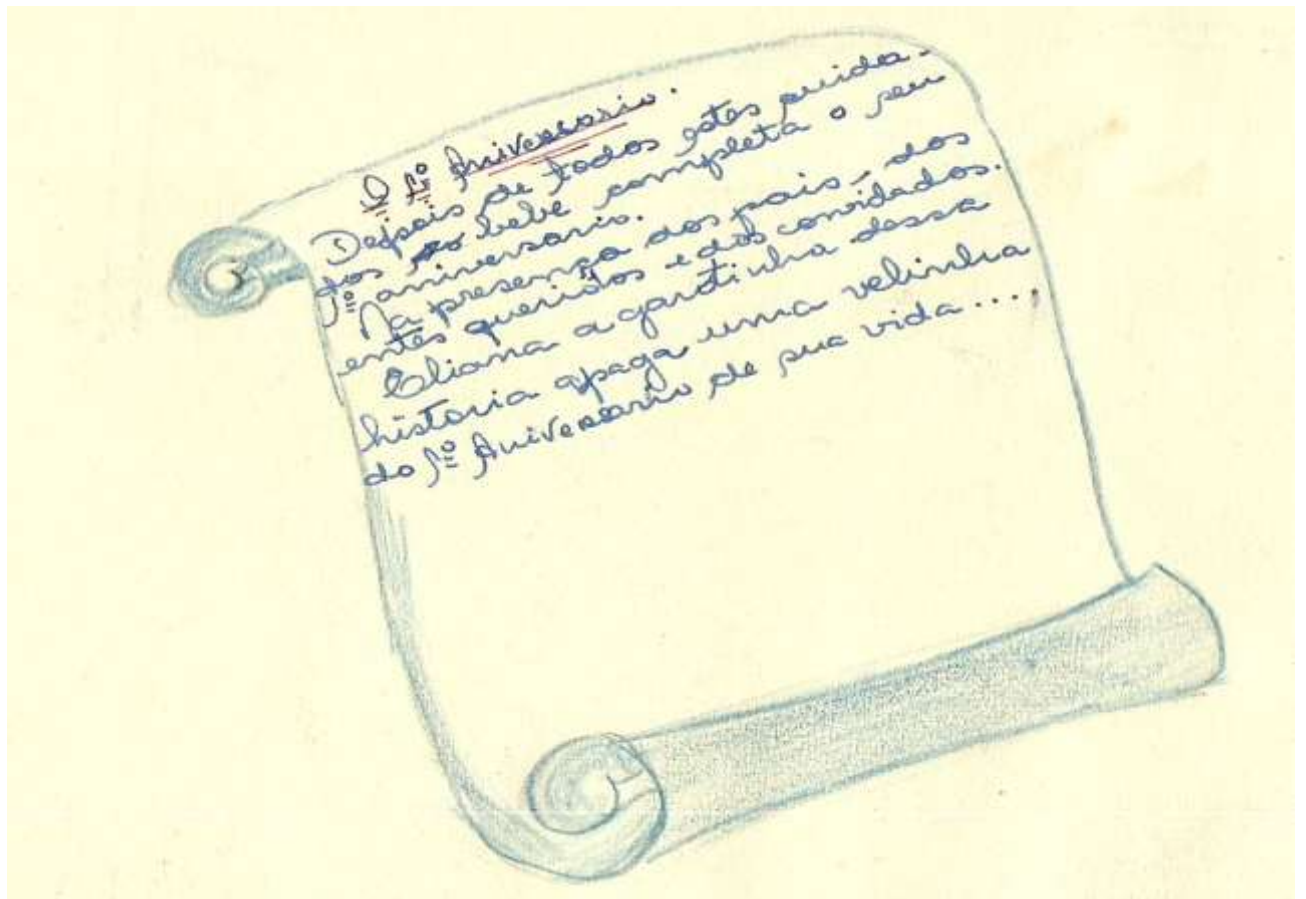 O 1º Aniversario.
Depois de todos estes cuida-
dos o bebê completa o seu
1º aniversario.
Na presença dos pais, dos
entes queridos e dos convidados.
Eliana a garotinha dessa
historia apaga uma velinha
do 1º Aniversario de sua vida ....